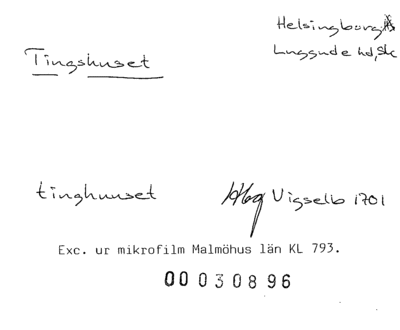 Helsingborg
Luggude hd, Sk
Tingshuset
tinghuuset
Hbg Vigselb 1701
Exc. ur mikrofilm Malmöhus län KL 793.
00030896